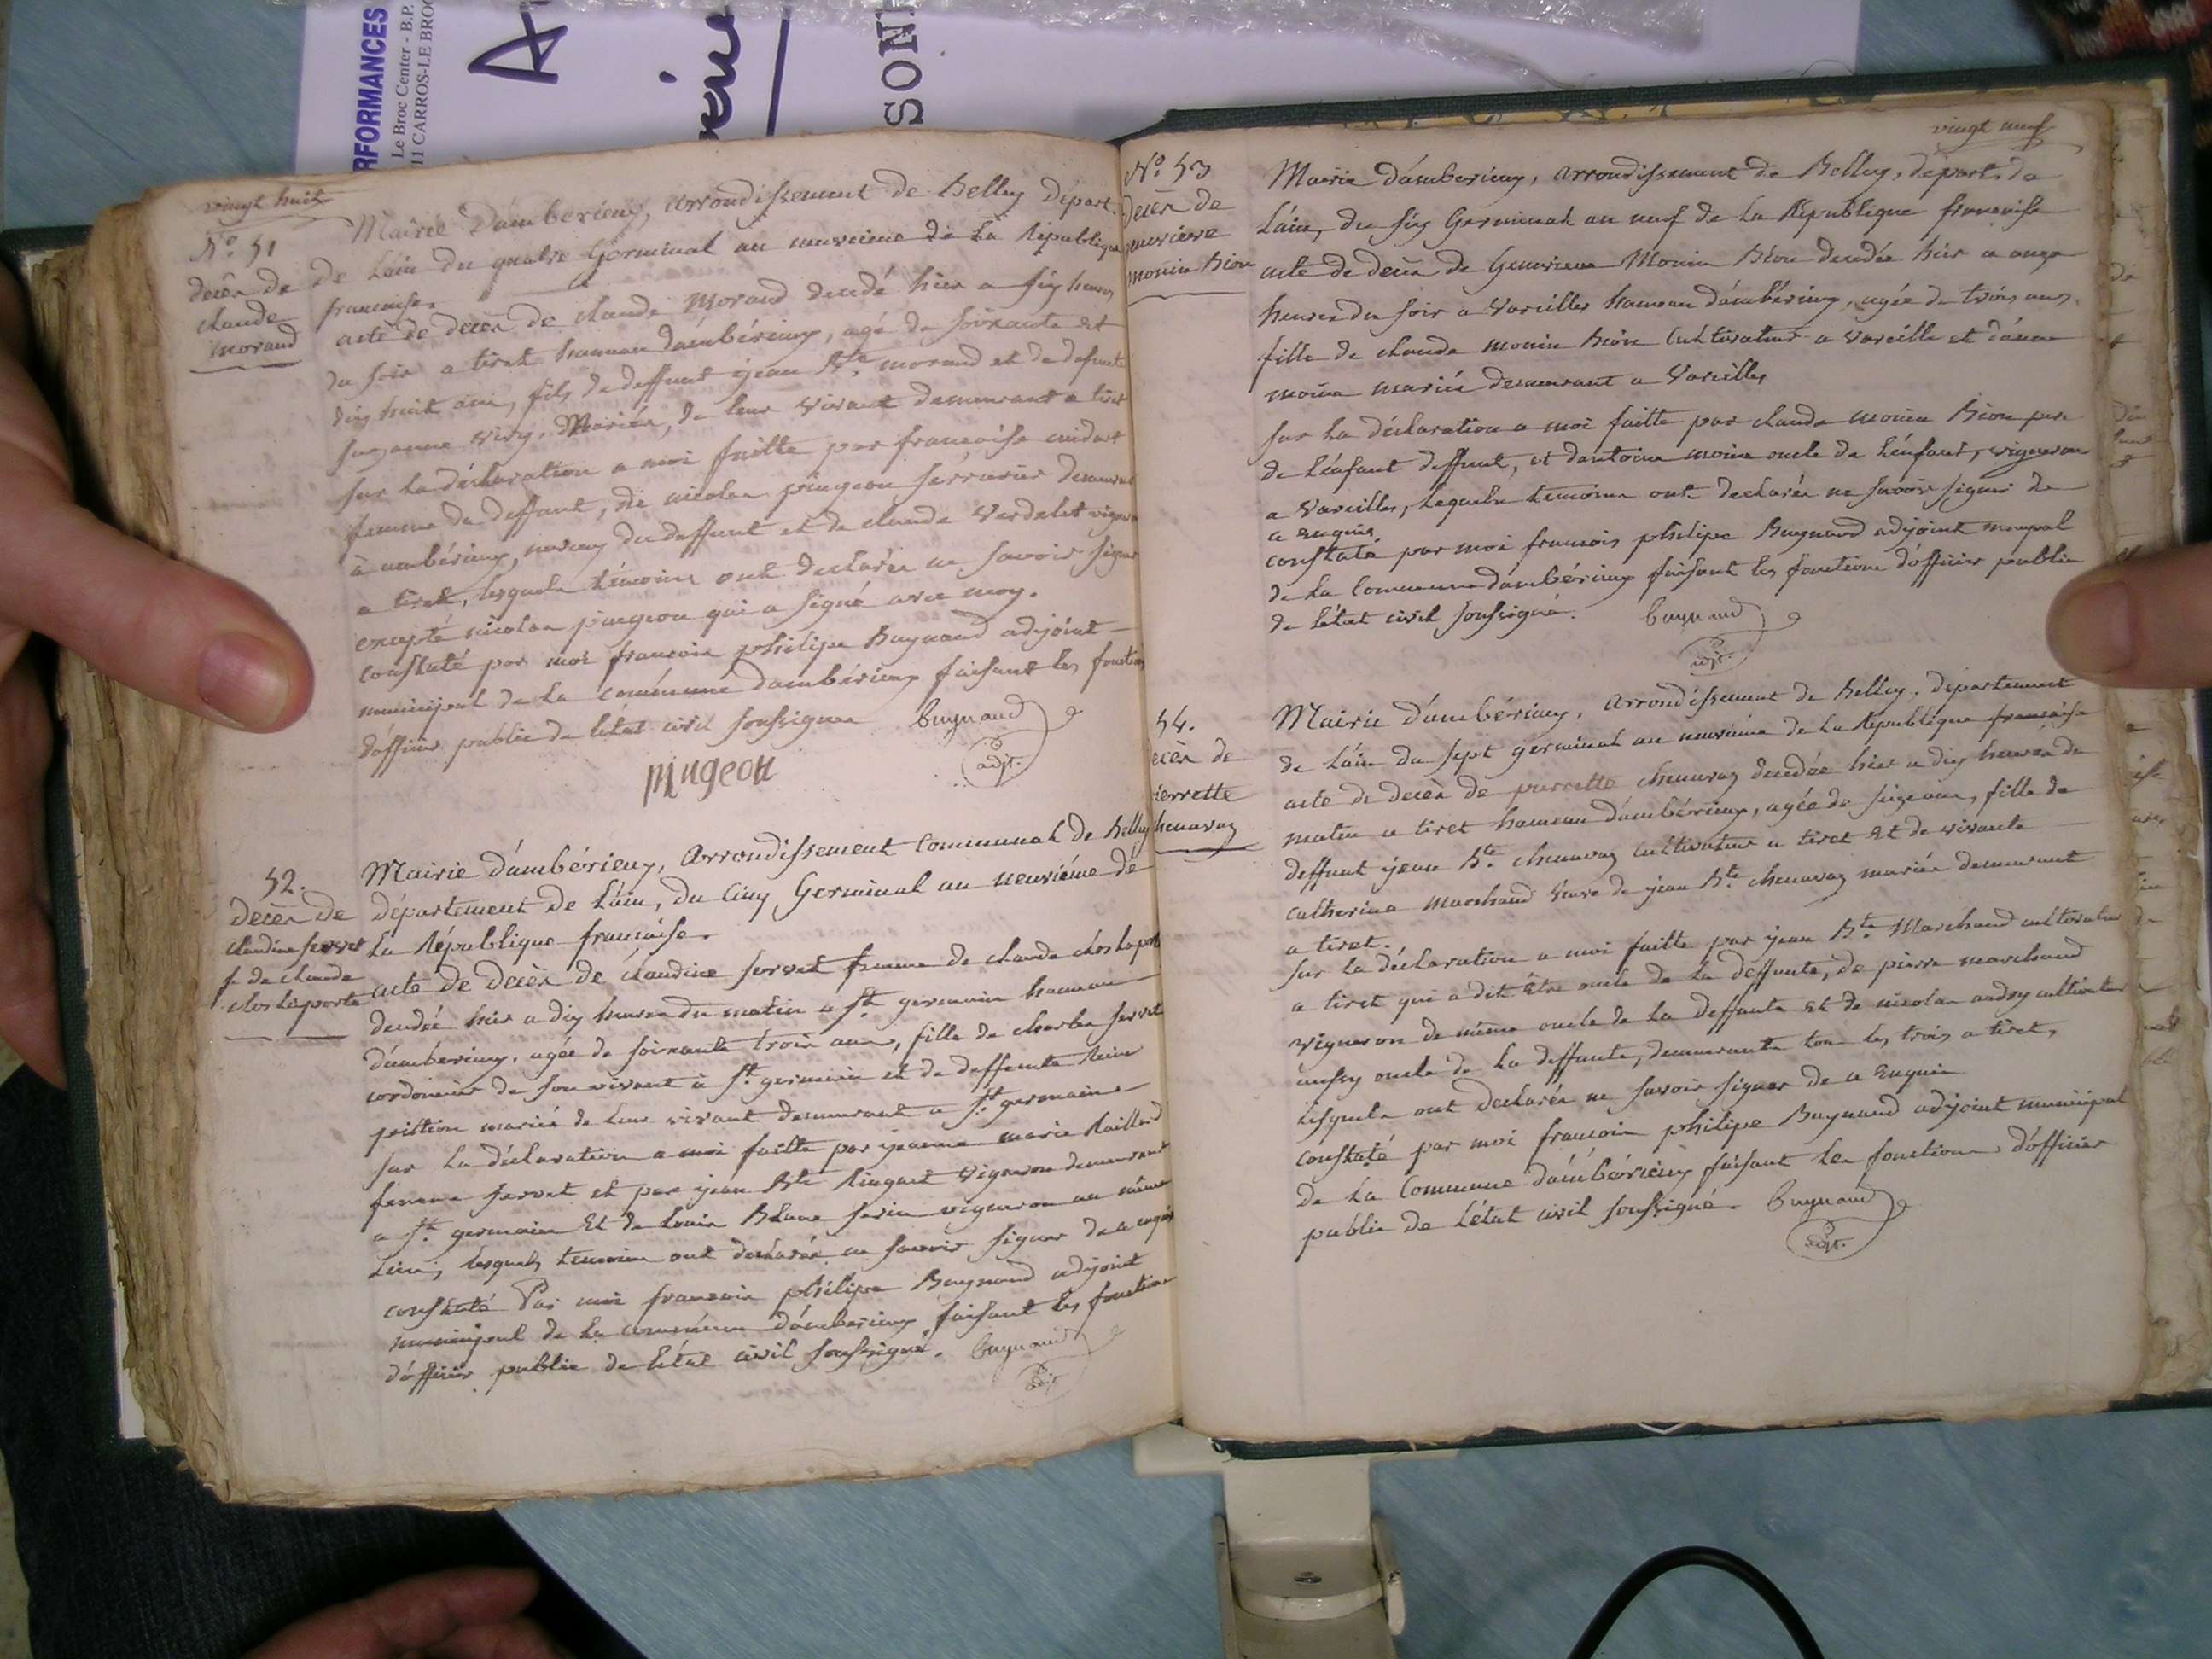 RFORMANCES
Le Broc Center - B.P.
11 CARROS-LE BROC
SON
vingt huit
N.o 51
decès de
claude
morand
Mairie d'amberieux, arrondissement de Belley départ.
de L'ain du quatre Germinal an neuvieme de La République
francaise.
acte de decès de claude Morand decedé hier a six heures
du soir a tiret hameau d'ambérieux, agé de soixante et
dix huit ans, fils de deffunt jean Bte morand et de defunte
suzanne viry. Mariés, de leur vivant demeurant a tiret
sur La déclaration a moi faitte par francoise
femme du deffunt, de nicolas pingeon serrurier demeurant
à ambérieux, neveu du deffunt et de claude Verdelet vigneron
a tiret, lesquels témoins ont declarés ne savoir signer
excepté nicolas pingeon qui a signé avec moy.
constaté par moi francois philipe Buynand adjoint
municipal de La commune d'ambérieux faisant les fonctions
d'officier public de l'état civil soussigner buynand
adjt.
pingeon
52.
decès de
claudine servet
f. de claude
clos Laporte
Mairie d'ambérieux, arrondissement Communal de Belley
département de L'ain, du cinq Germinal an neuviéme de
La République francaise.
acte de decès de claudine servet femme de claude clos Laporte
decedée hier a dix heures du matin a st. germain hameau
d'amberieux, agée de soixante trois ans, fille de charles servet
cordonier de son vivant à st. germain et de deffunte Reine
mariés de leur vivant demeurant a st. germain
sur La déclaration a moi faitte par jeanne marie Raillard
femme servet et par jean Bte vigneron demeurant
a st. germain Et de Louis Blanc vigneron au même
Lieu, lesquels temoins ont declarés ne savoir signer de ce
constaté Par moi francois philipe Buynand adjoint
municipal de La commune d'amberieux faisant les fonctions
d'officier public de l'état civil soussigné. buynand
adjt.
vingt neuf
N.o 53
decès de
monin Bion
Mairie d'amberieux, arrondissement de Belley, départ. de
L'ain, du six Germinal an neuf de La République francaise
acte de decès de Genevieve Monin Bion decedée hier a onze
heures du soir a Vareilles hameau d'ambérieux, agée de trois ans,
fille de claude monin Bion Cultivateur a Vareille et d'anne
monin mariés demeurant a Vareilles
sur La déclaration a moi faitte par claude monin Bion père
de l'enfant deffunt, et d'antoine monin oncle de L'enfant, vigneron
a Vareilles, Lequels temoins ont declarés ne savoir signer de
ce Enquis
constaté par moi francois philipe Buynand adjoint
de La Commune d'ambérieux faisant les fonctions d'officier public
de L'état civil soussigné. buynand
adjt.
54.
ecès de
ierrette
henavaz
Mairie d'ambérieux, arrondissement de Belley, département
de L'ain du sept germinal an neuviéme de La République francaise
acte de decès de pierrette chenavaz decedée hier a dix heures du
matin a tiret hameau d'ambérieux, agée de seize ans, fille de
deffunt jean Bte. chenavaz cultivateur a tiret Et de vivante
catherine Marchand veuve de jean Bte. chenavaz mariés demeurant
a tiret.
sur La déclaration a moi faitte par jean Bte. Marchand cultivateur
a tiret qui a dit Etre oncle de La deffunte, de pierre marchand
vigneron de même oncle de La deffunte Et de nicolas cultivateur
aussy oncle de La deffunte, demeurants tous les trois a tiret,
Lesquels ont declarés ne savoir signer de ce Enquis
constaté par moi francois philipe Buynand adjoint municipal
de La Commune d'ambérieux faisant les fonctions d'officier
public de L'état civil soussigné. buynand
adjt.